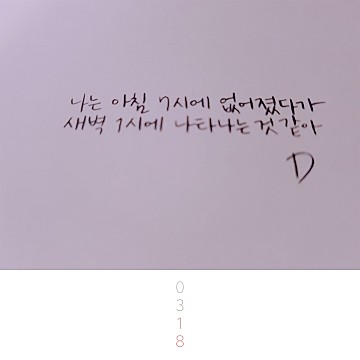 나는 아침 7시에 없어졌다가
새벽 1시에 나타나는것 같아
D
0
3
1
8